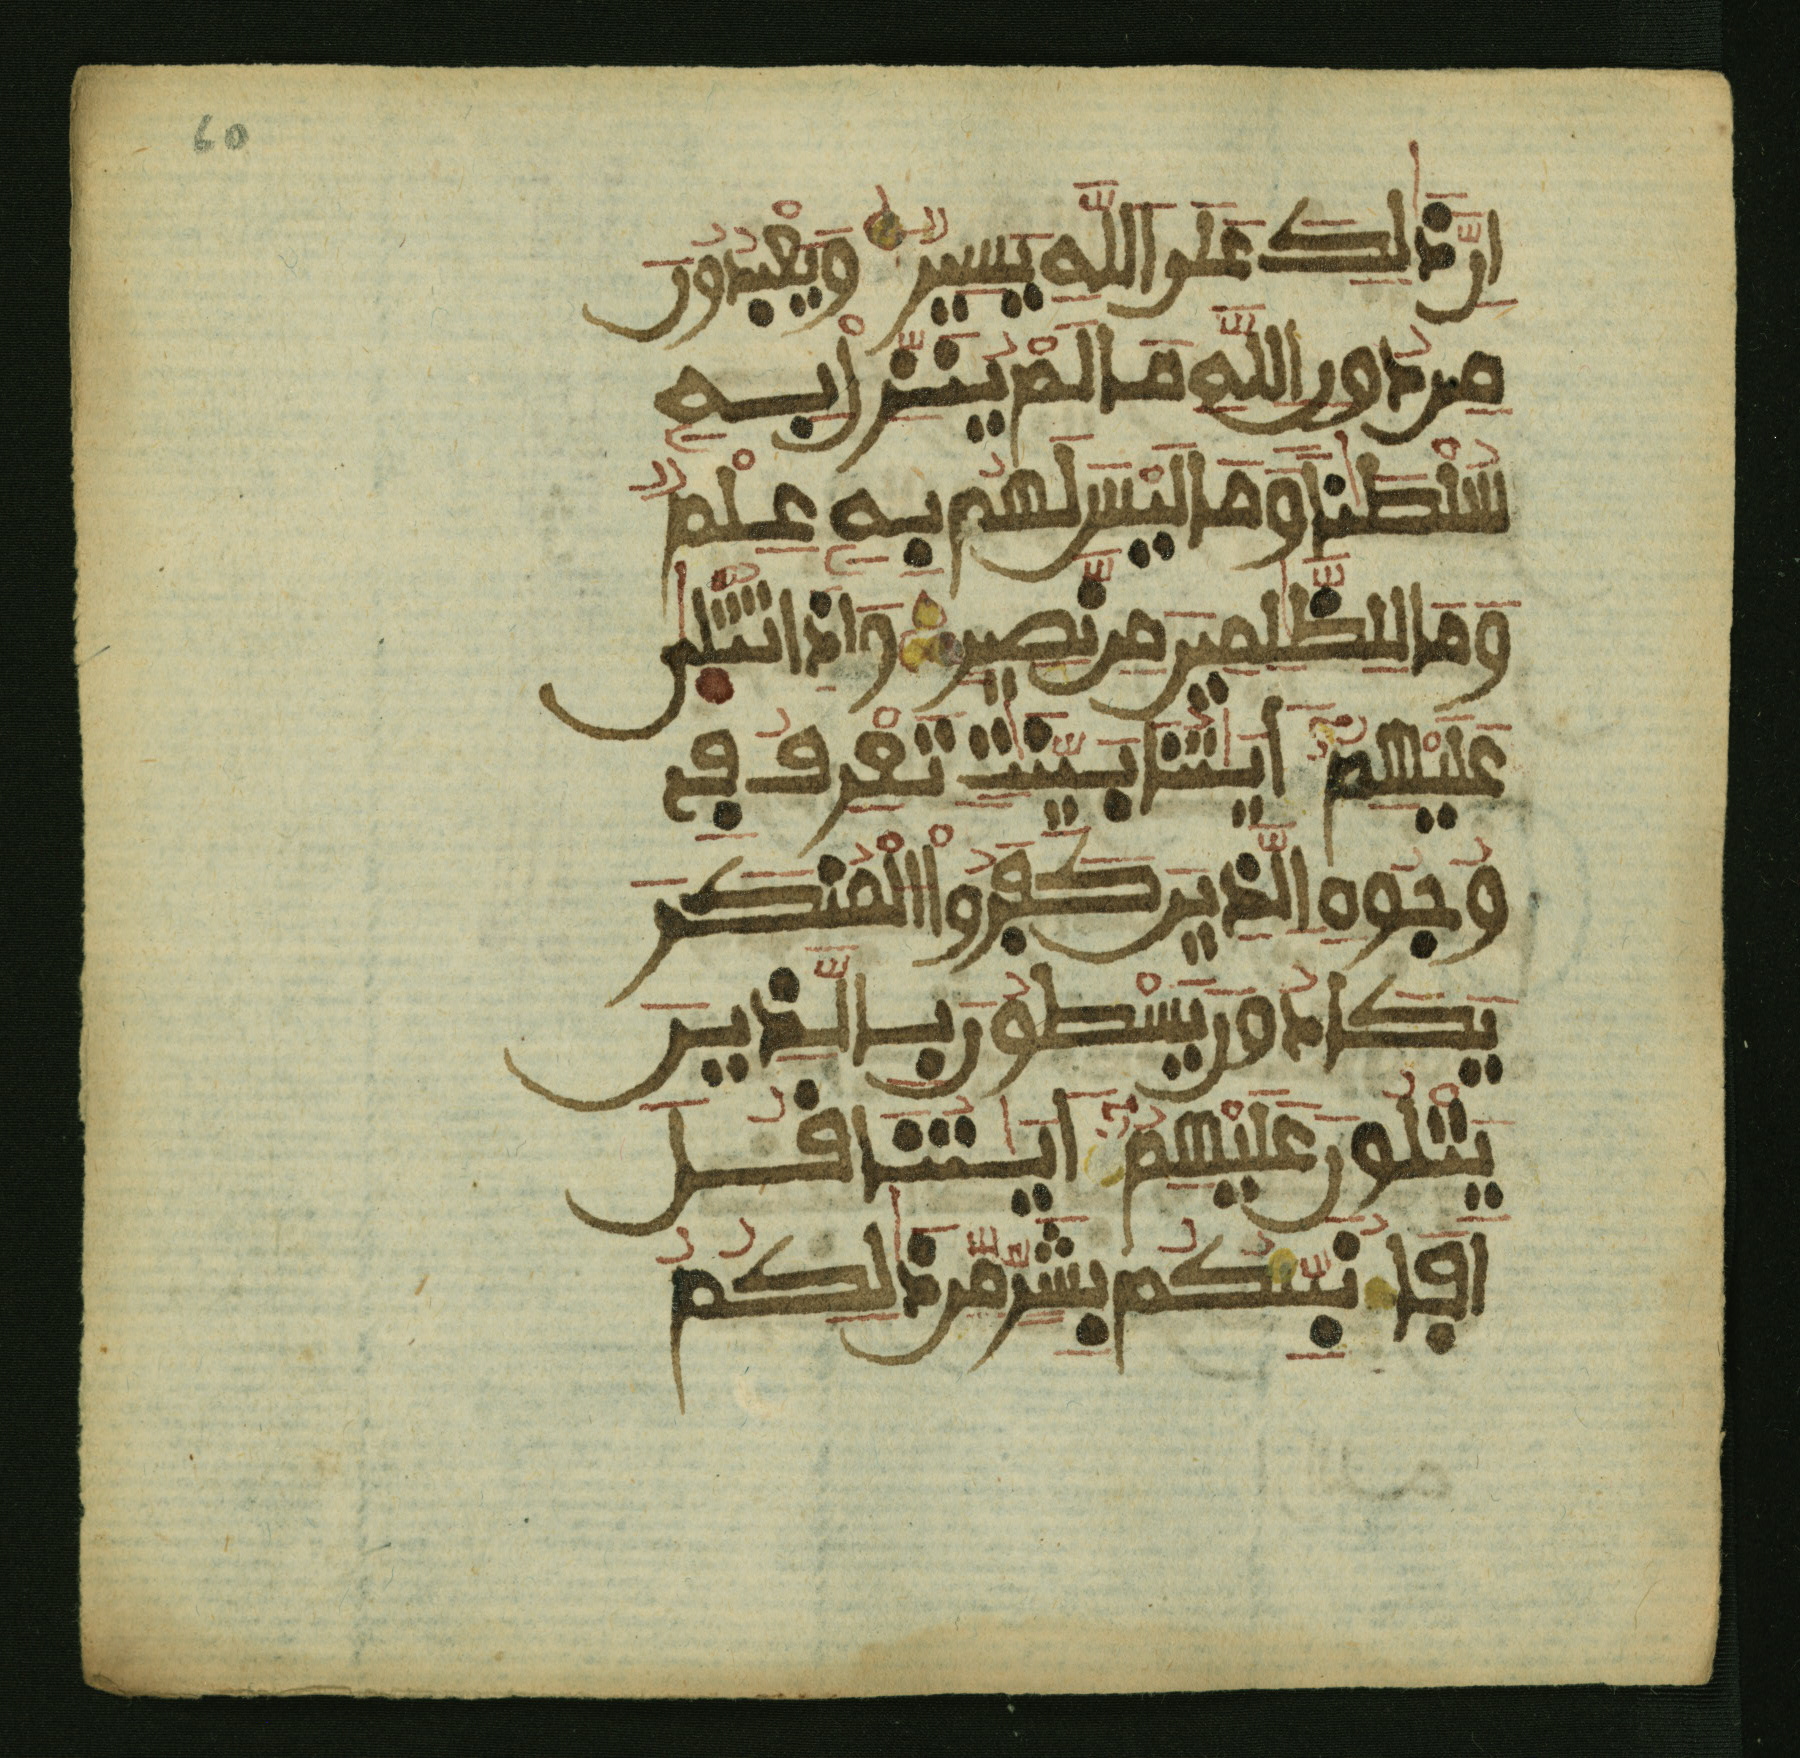 60
اِنَّ ذَٰلِكَ عَلَى اللَّهِ يَسِيرٌ وَيَعْبُدُونَ
مِن دُونِ اللَّهِ مَا لَمْ يُنَزِّلْ بِهِ
سُلْطَٰنًا وَمَا لَيْسَ لَهُم بِهِ عِلْمٌ
وَمَا لِلظَّٰلِمِينَ مِن نَّصِيرٍ وَاِذَا تُتْلَىٰ
عَلَيْهِمُ ءَايَٰتُنَا بَيِّنَٰتٍ تَعْرِفُ فِي
وُجُوهِ الَّذِينَ كَفَرُوا۟ الْمُنكَرَ
يَكَادُونَ يَسْطُونَ بِالَّذِينَ
يَتْلُونَ عَلَيْهِمُ ءَايَٰتِنَا قُلَ
اَفَاُنَبِّئُكُم بِشَرٍّ مِّن ذَٰلِكُمُ